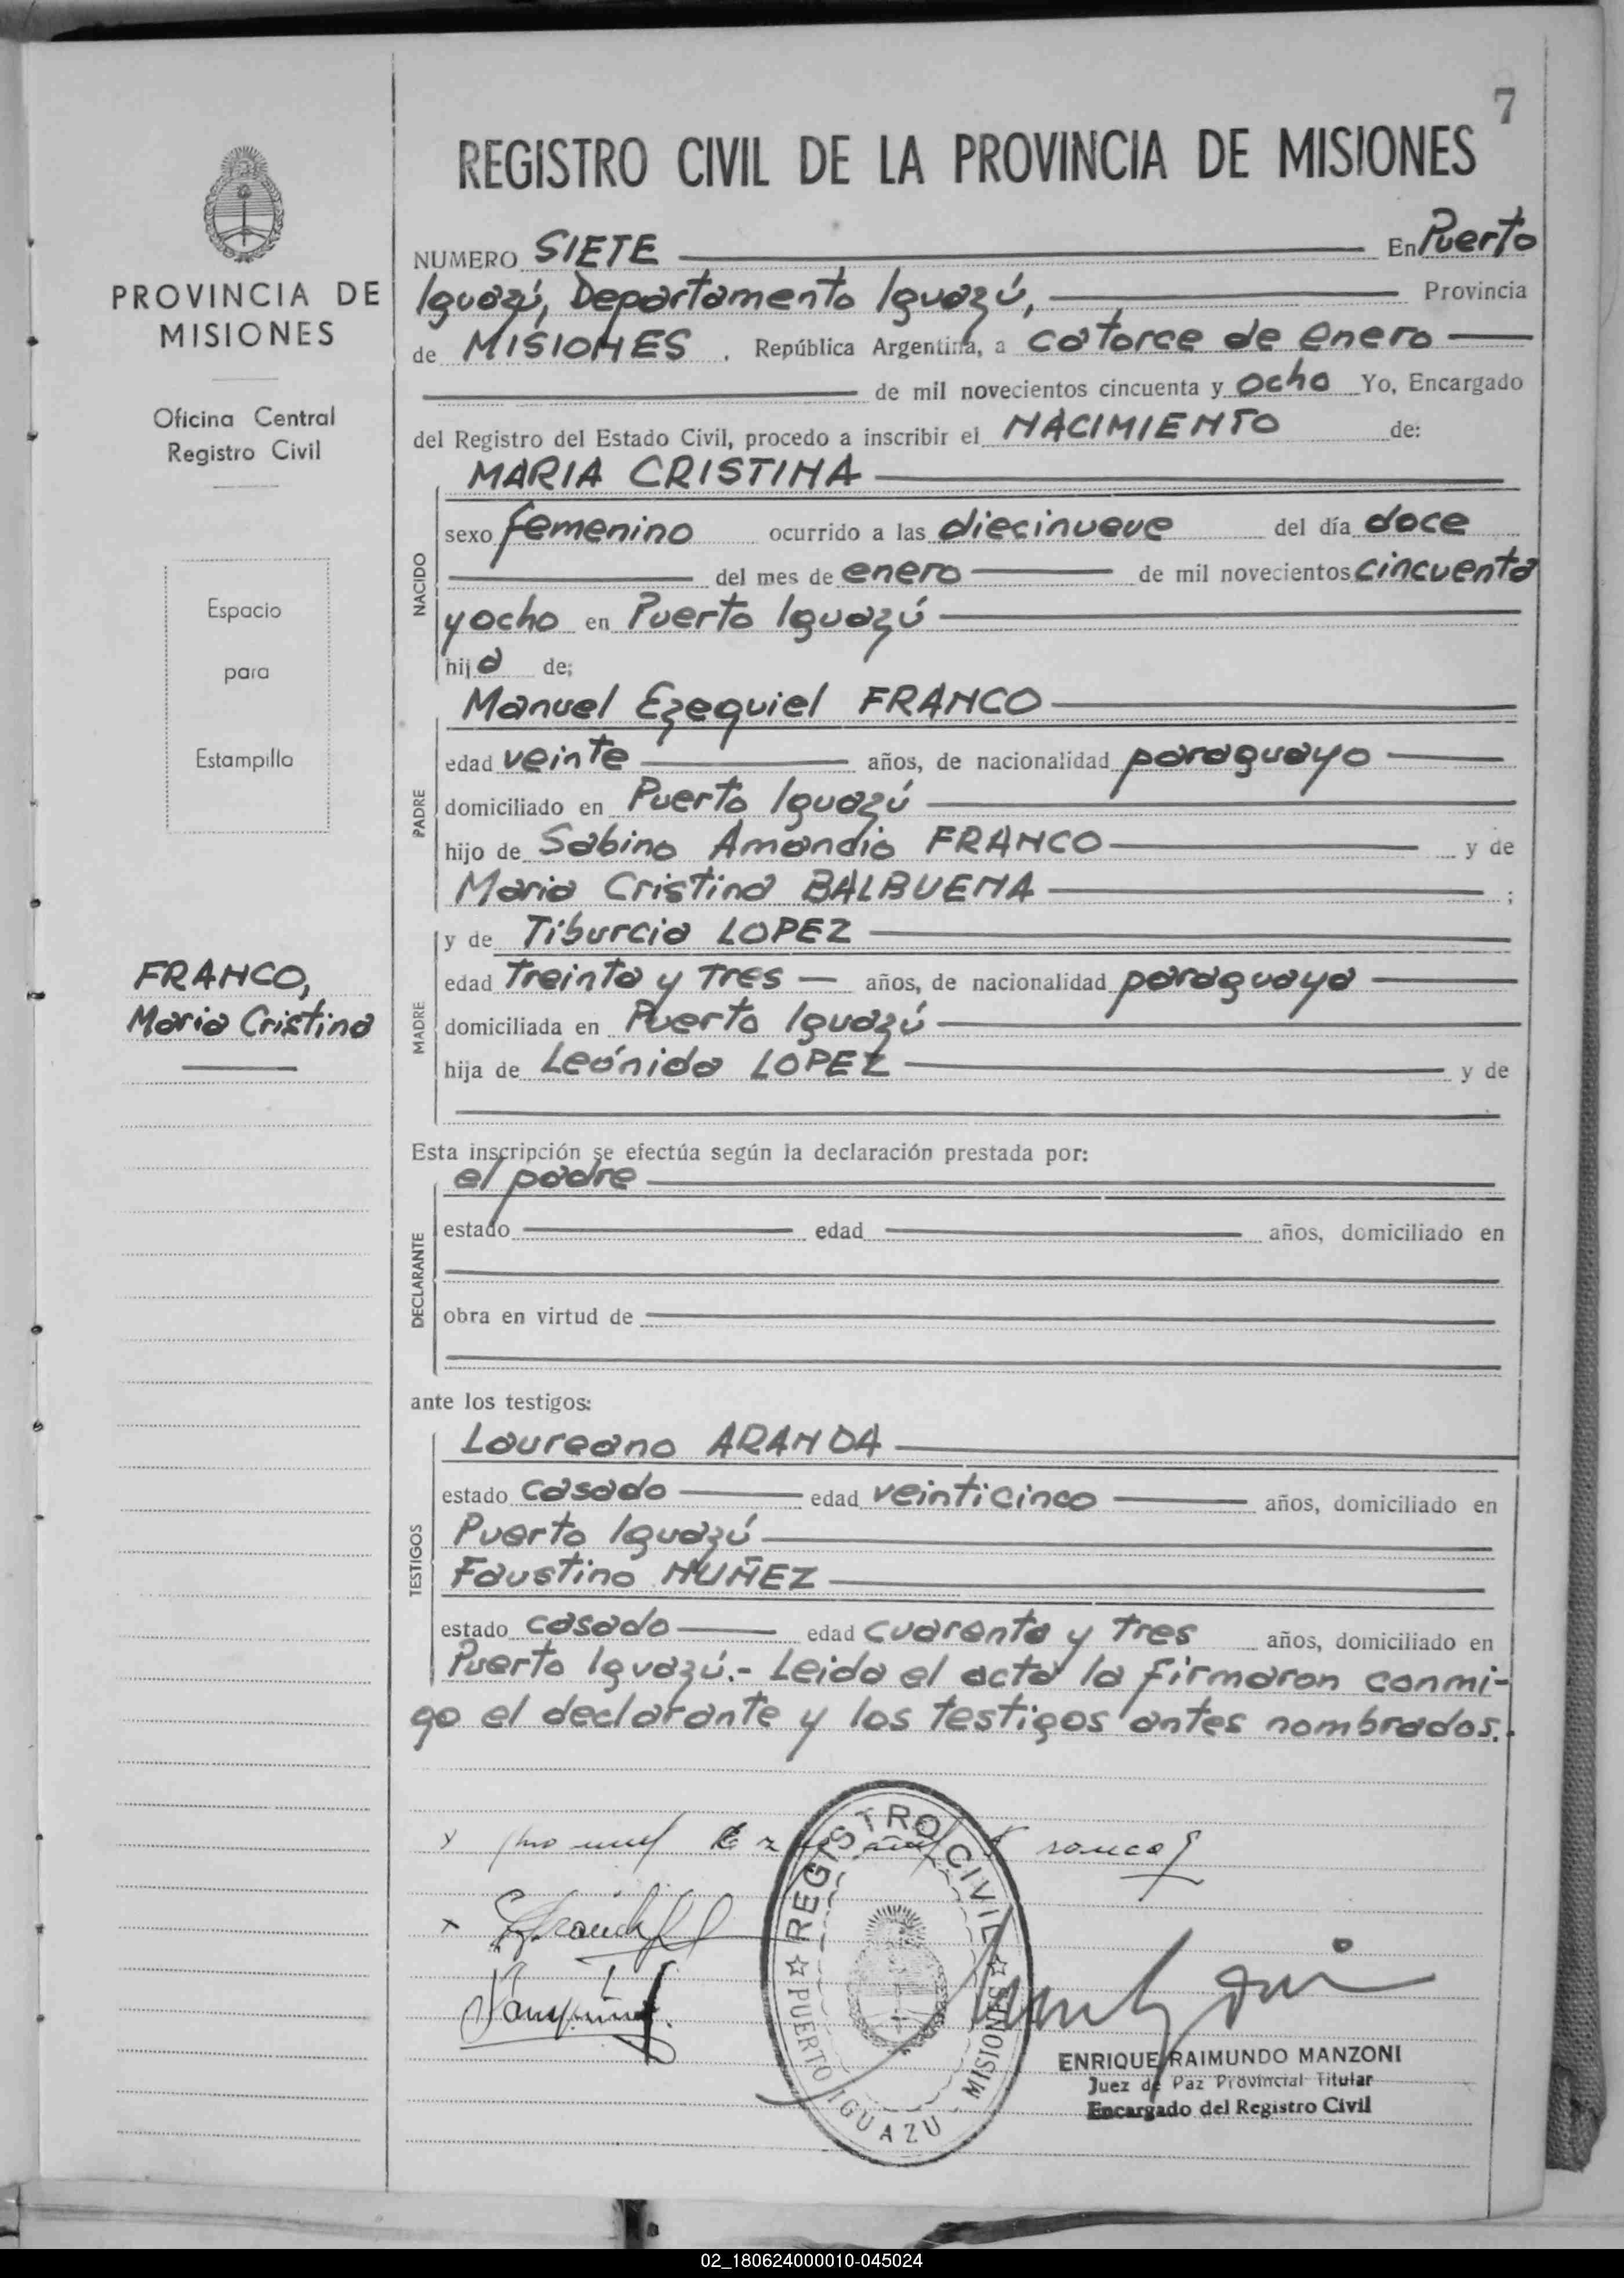 7
REGISTRO CIVIL DE LA PROVINCIA DE MISIONES
PROVINCIA DE
MISIONES
Oficina Central
Registro Civil
Espacio
para
Estampilla
FRANCO,
Maria Cristina
NUMERO SIETE En Puerto
Iguazú, Departamento Iguazú, Provincia
de MISIONES, República Argentina, a catorce de enero
de mil novecientos cincuenta y ocho Yo, Encargado
del Registro del Estado Civil, procedo a inscribir el NACIMIENTO de:
NACIDO
MARIA CRISTINA
sexo femenino ocurrido a las diecinueve del día doce
del mes de enero de mil novecientos cincuenta
y ocho en Puerto Iguazú
hija de;
PADRE
Manuel Ezequiel FRANCO
edad veinte años, de nacionalidad paraguayo
domiciliado en Puerto Iguazú
hijo de Sabino Amancio FRANCO y de
Maria Cristina BALBUENA ;
MADRE
y de Tiburcia LOPEZ
edad treinta y tres años, de nacionalidad paraguaya
domiciliada en Puerto Iguazú
hija de Leónida LOPEZ y de
Esta inscripción se efectúa según la declaración prestada por:
DECLARANTE
el padre
estado edad años, domiciliado en
obra en virtud de
ante los testigos:
TESTIGOS
Laureano ARANDA
estado casado edad veinticinco años, domiciliado en
Puerto Iguazú
Faustino NUÑEZ
estado casado edad cuarenta y tres años, domiciliado en
Puerto Iguazú.- Leida el acta la firmaron conmi-
go el declarante y los testigos antes nombrados.
Manuel Ezequiel Franco
REGISTRO CIVIL
PUERTO IGUAZU - MISIONES
ENRIQUE RAIMUNDO MANZONI
Juez de Paz Provincial Titular
Encargado del Registro Civil
02_180624000010-045024